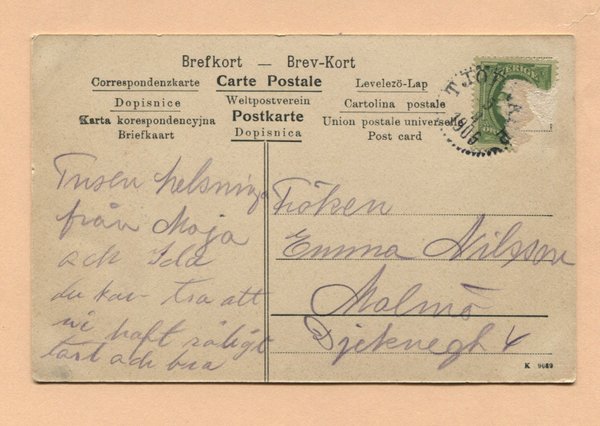 Brefkort — Brev-Kort
Correspondenzkarte Carte Postale Levelező-Lap
Dopisnice Weltpostverein Cartolina postale
Karta korespondencyjna Postkarte Union postale universelle
Briefkaart Dopisnica Post card
SVERIGE
TJÖR
1905
Tusen helsninga
från Maja
och Ida
du kan tro att
vi haft roligt
Fröken
Emma Nilsson
Malmö
4
K 9689